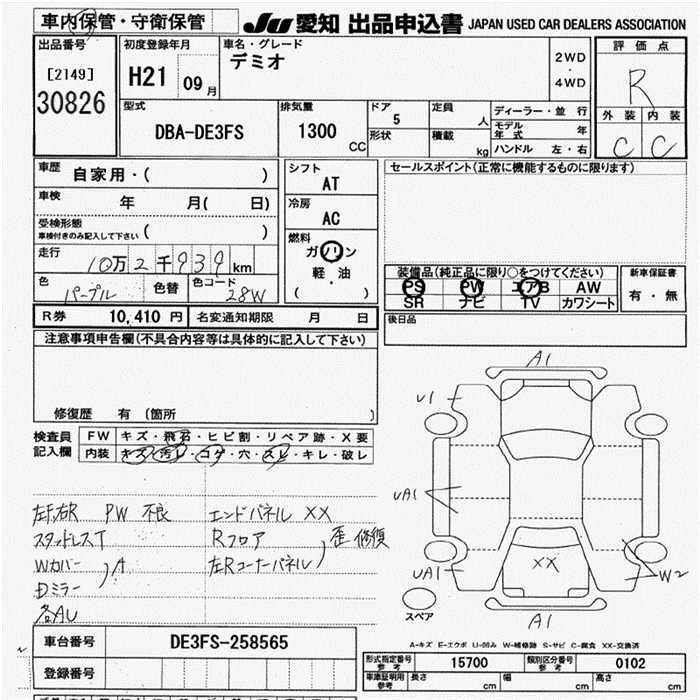 車内保管・守衛保管
JU 愛知 出品申込書 JAPAN USED CAR DEALERS ASSOCIATION
出品番号
[2149]
30826
初度登録年月
H21 09 月
車名・グレード
デミオ
2WD
・
4WD
評価点
R
外装 内装
C C
型式
DBA-DE3FS
排気量
1300
CC
ドア
5
定員
人
形状
積載
kg
ディーラー・並行
モデル年式 年
ハンドル 左・右
車歴
自家用・( )
車検
年 月( 日)
受検形態
車検付きのみ記入して下さい ( )
走行
10万2千939km
色
パープル
色替
色コード
28W
シフト
AT
冷房
AC
燃料
ガソリン
・
軽油
・
( )
セールスポイント(正常に機能するものに限ります)
装備品(純正品に限り○をつけてください)
PS PW エアB AW
SR ナビ TV カワシート
新車保証書
有・無
後日品
R券 10,410 円 名変通知期限 月 日
注意事項申告欄(不具合内容等は具体的に記入して下さい)
修復歴 有 〔箇所 〕
検査員
記入欄
FW キズ・飛石・ヒビ割・リペア跡・X要
内装 キズ・汚レ・コゲ・穴・スレ・キレ・破レ
左F,右R PW 不良
スタッドレスT
Wカバー
Dミラー
A
各AU
エンドパネル XX
Rフロア
左Rコーナーパネル
歪 修復
A1
U1
UA1
UA1
XX
W2
A1
スペア
A-キズ E-エクボ U-凹み W-補修跡 S-サビ C-腐食 XX-交換済
車台番号 DE3FS-258565
登録番号
型式指定番号
参考
15700
類別区分番号
参考
0102
車庫証明用
参考
長さ cm 幅 cm 高さ cm